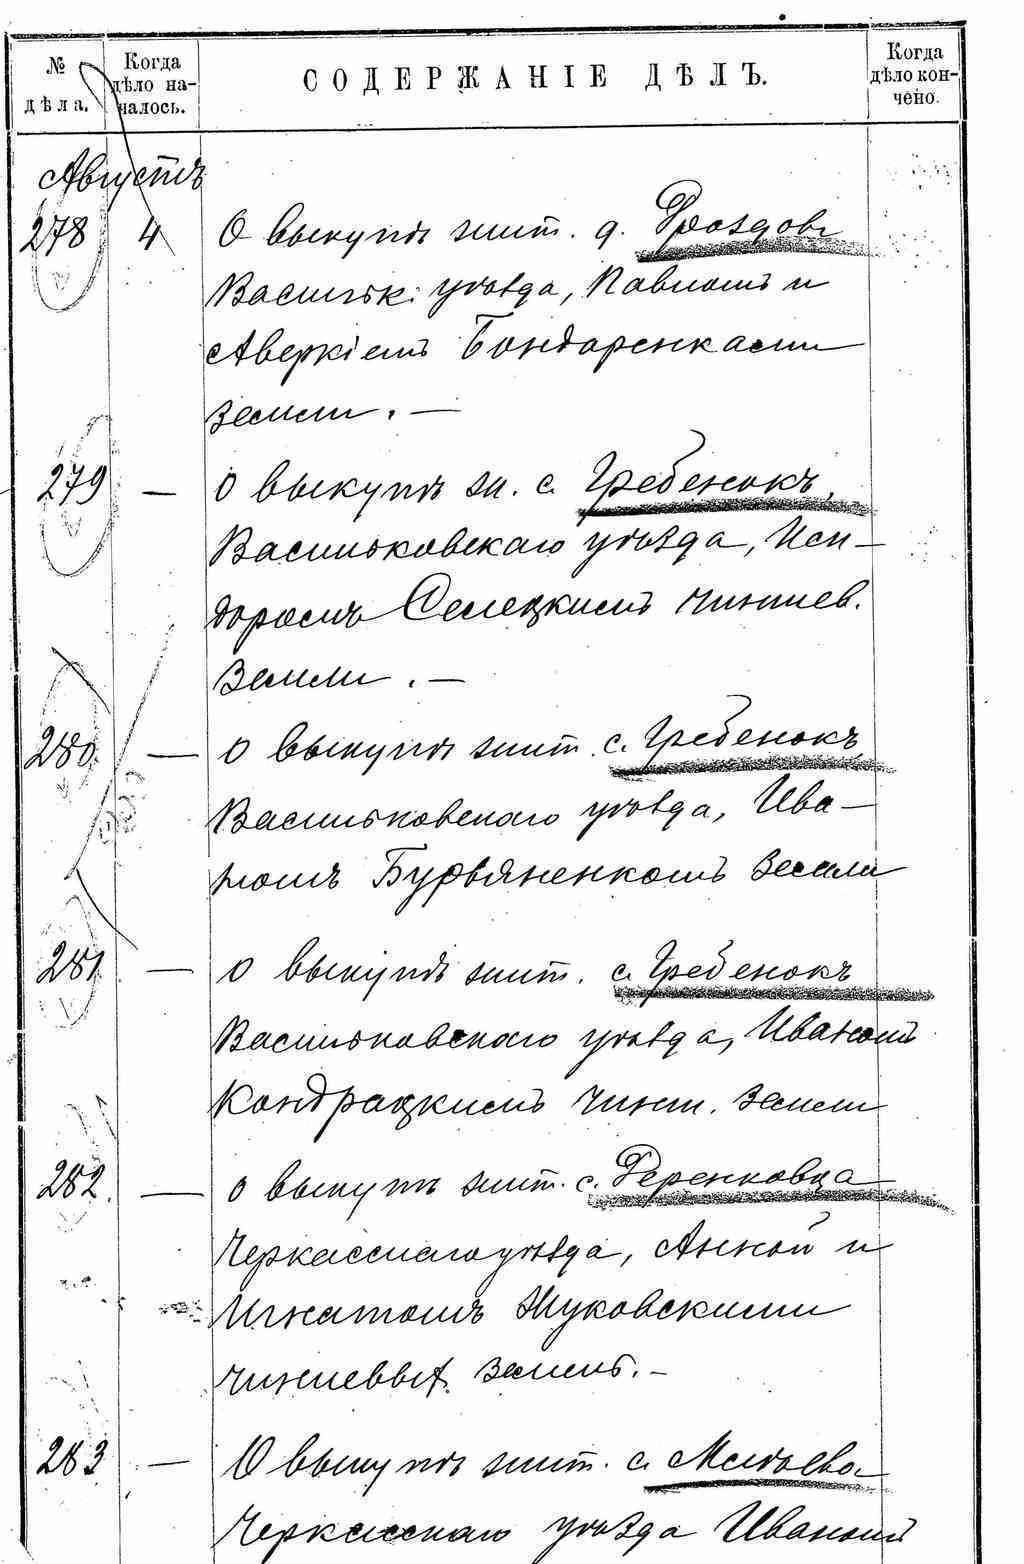 № дѣла.
Когда дѣло началось.
СОДЕРЖАНІЕ ДѢЛЪ.
Когда дѣло кончено.
Августъ
278 4 О выкупѣ жит. д.
Васильк. уѣзда, Павломъ и
Аверкіемъ Бондаренками
земли. —
279 — О выкупѣ ж. с. Гребенокъ,
Васильковскаго уѣзда, Иси-
доромъ Селецкимъ чиншев.
земли. —
280 — О выкупѣ жит. с. Гребенокъ
Васильковскаго уѣзда, Ива-
номъ Бурьяненкомъ земли
281 — О выкупѣ жит. с. Гребенокъ
Васильковскаго уѣзда, Иваномъ
Кондрацкимъ чинш. земли
282. — О выкупѣ жит. с. Деренковца
Черкасскаго уѣзда, Анной и
Игнатомъ Жуковскими
чиншевых земель. —
283 — О выкупѣ жит. с.
Черкасскаго уѣзда Иваномъ